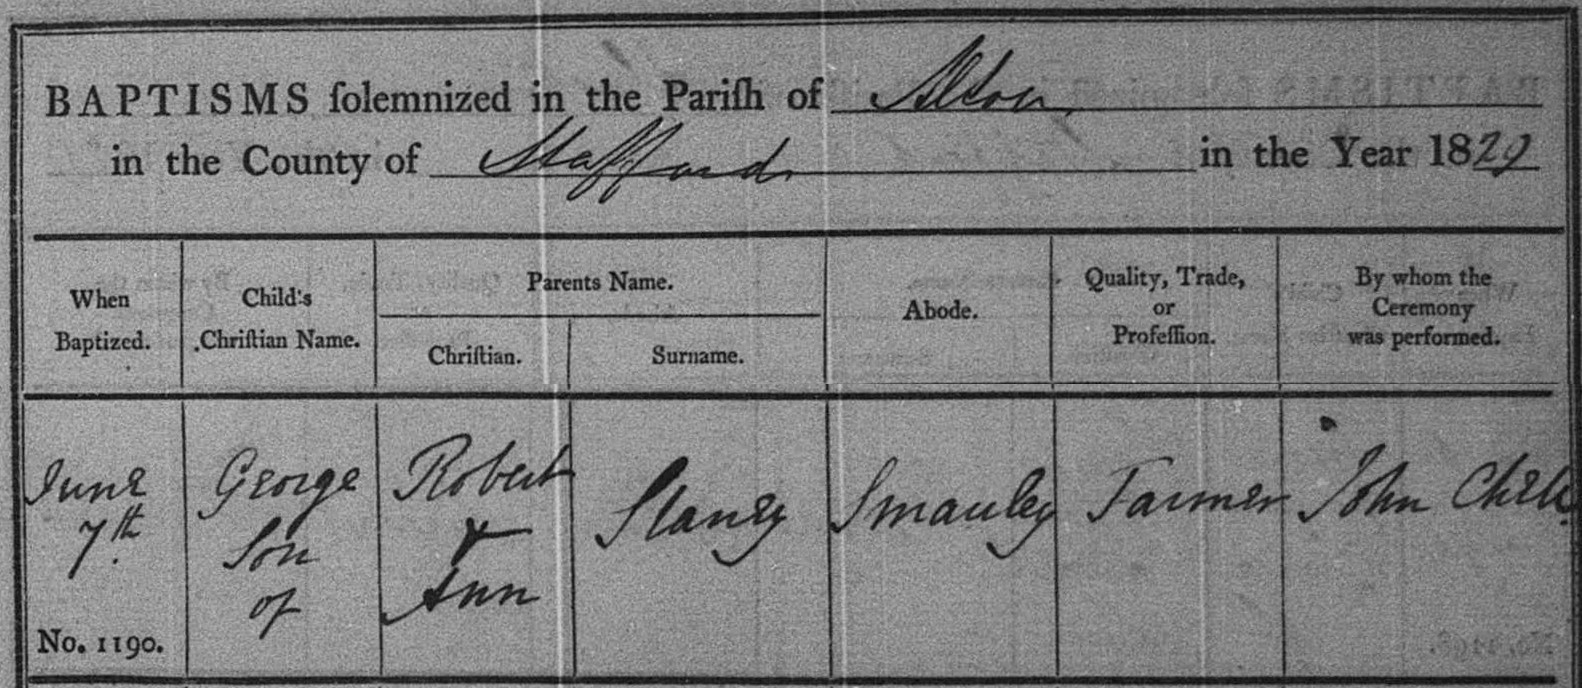 BAPTISMS ſolemnized in the Pariſh of Alton
in the County of Stafford in the Year 1829
When
Baptized.
Child's
Chriſtian Name.
Parents Name.
Chriſtian.
Surname.
Abode.
Quality, Trade,
or
Profeſſion.
By whom the
Ceremony
was performed.
June
7th.
No. 1190.
George
Son
of
Robert
&
Ann
Slaney
Farmer
John